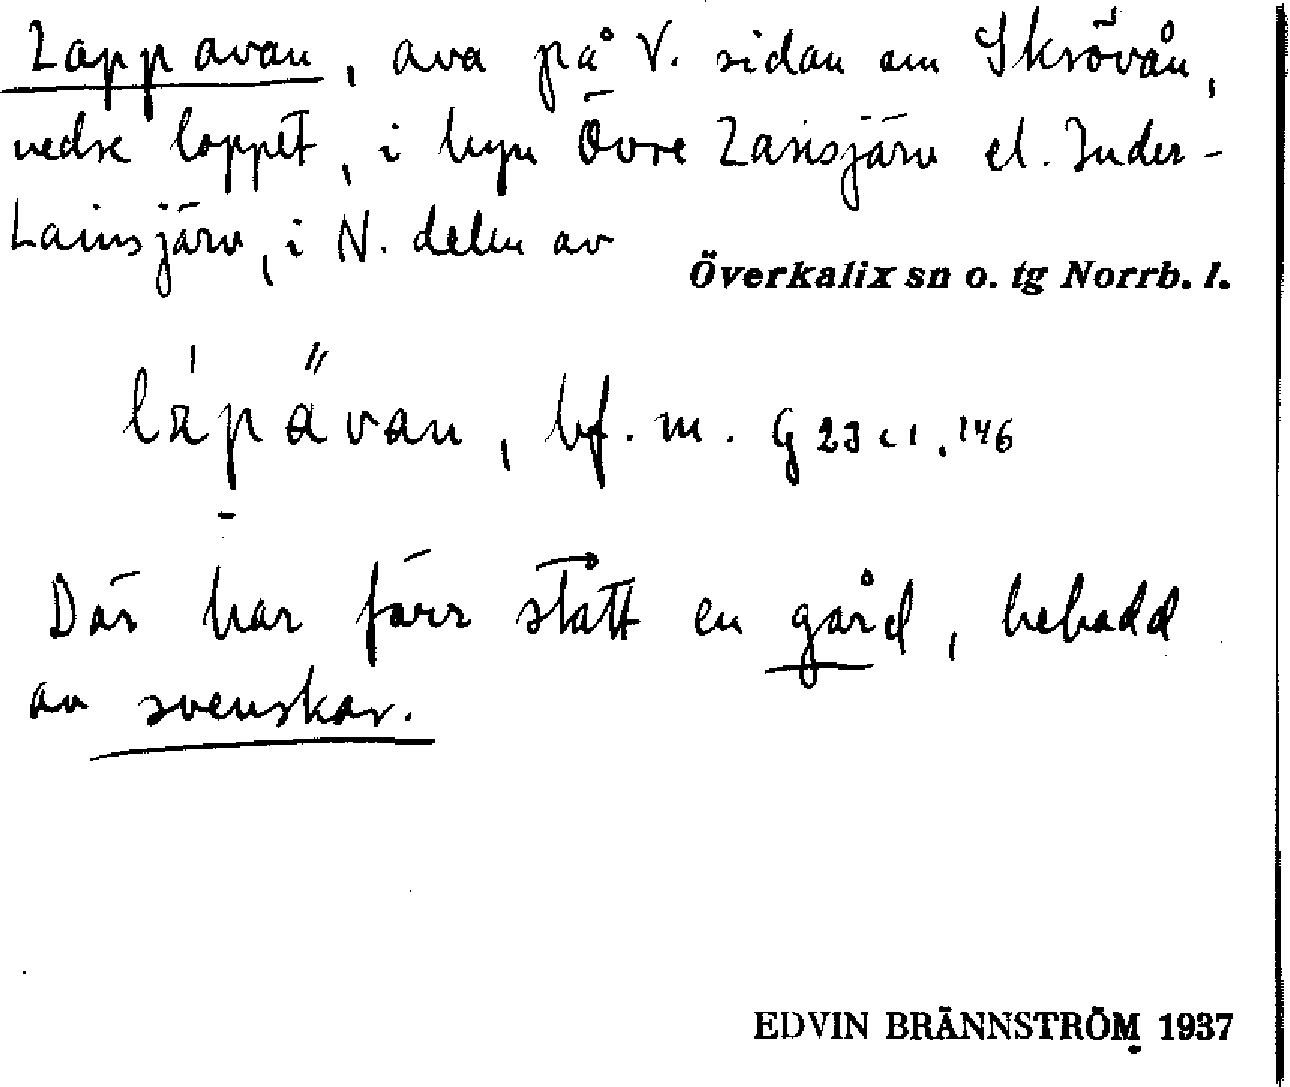 Lappavan, ava på V. sidan om Skrövån,
nedre loppet, i byn Övre Lansjärv el. Inder-
Lainsjärv, i N. delen av
Överkalix sn o. tg Norrb. l.
läpävan, bf. m.
Där har förr stått en gård, bebodd
av svenskar.
EDVIN BRÄNNSTRÖM 1937